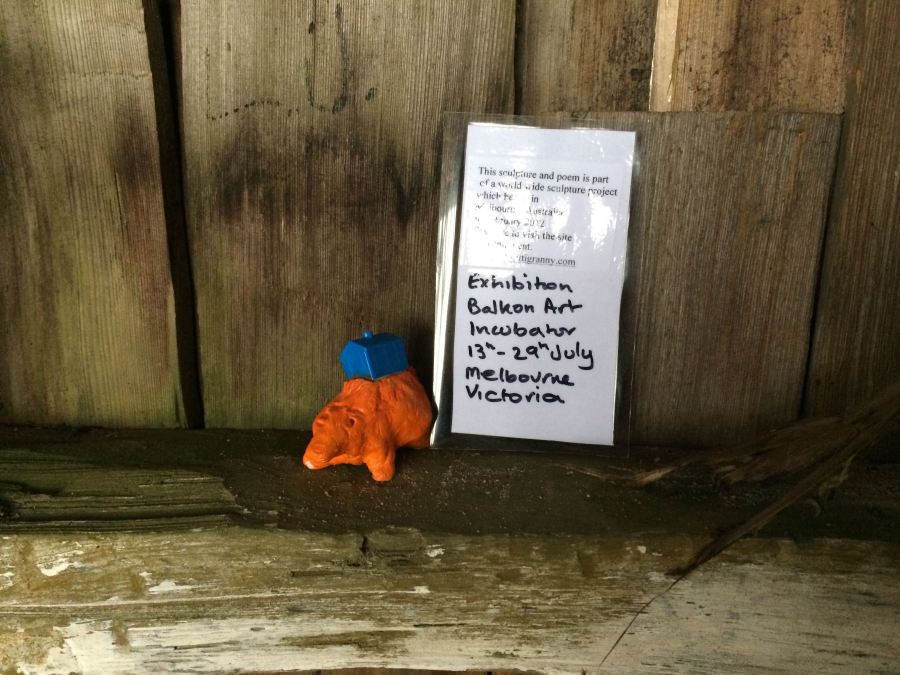 This sculpture and poem is part
of a world wide sculpture project
which in
Australia
2012
visit the site

Exhibition
Balkon Art
Incubator
13th - 29th July
Melbourne
Victoria